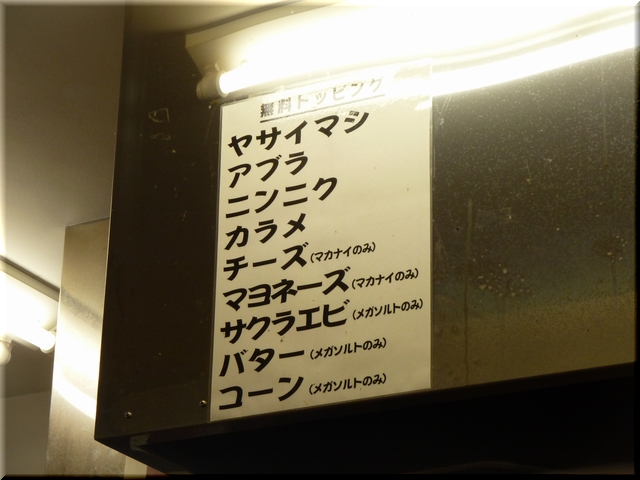 無料トッピング
ヤサイマシ
アブラ
ニンニク
カラメ
チーズ(マカナイのみ)
マヨネーズ(マカナイのみ)
サクラエビ(メガソルトのみ)
バター(メガソルトのみ)
コーン(メガソルトのみ)